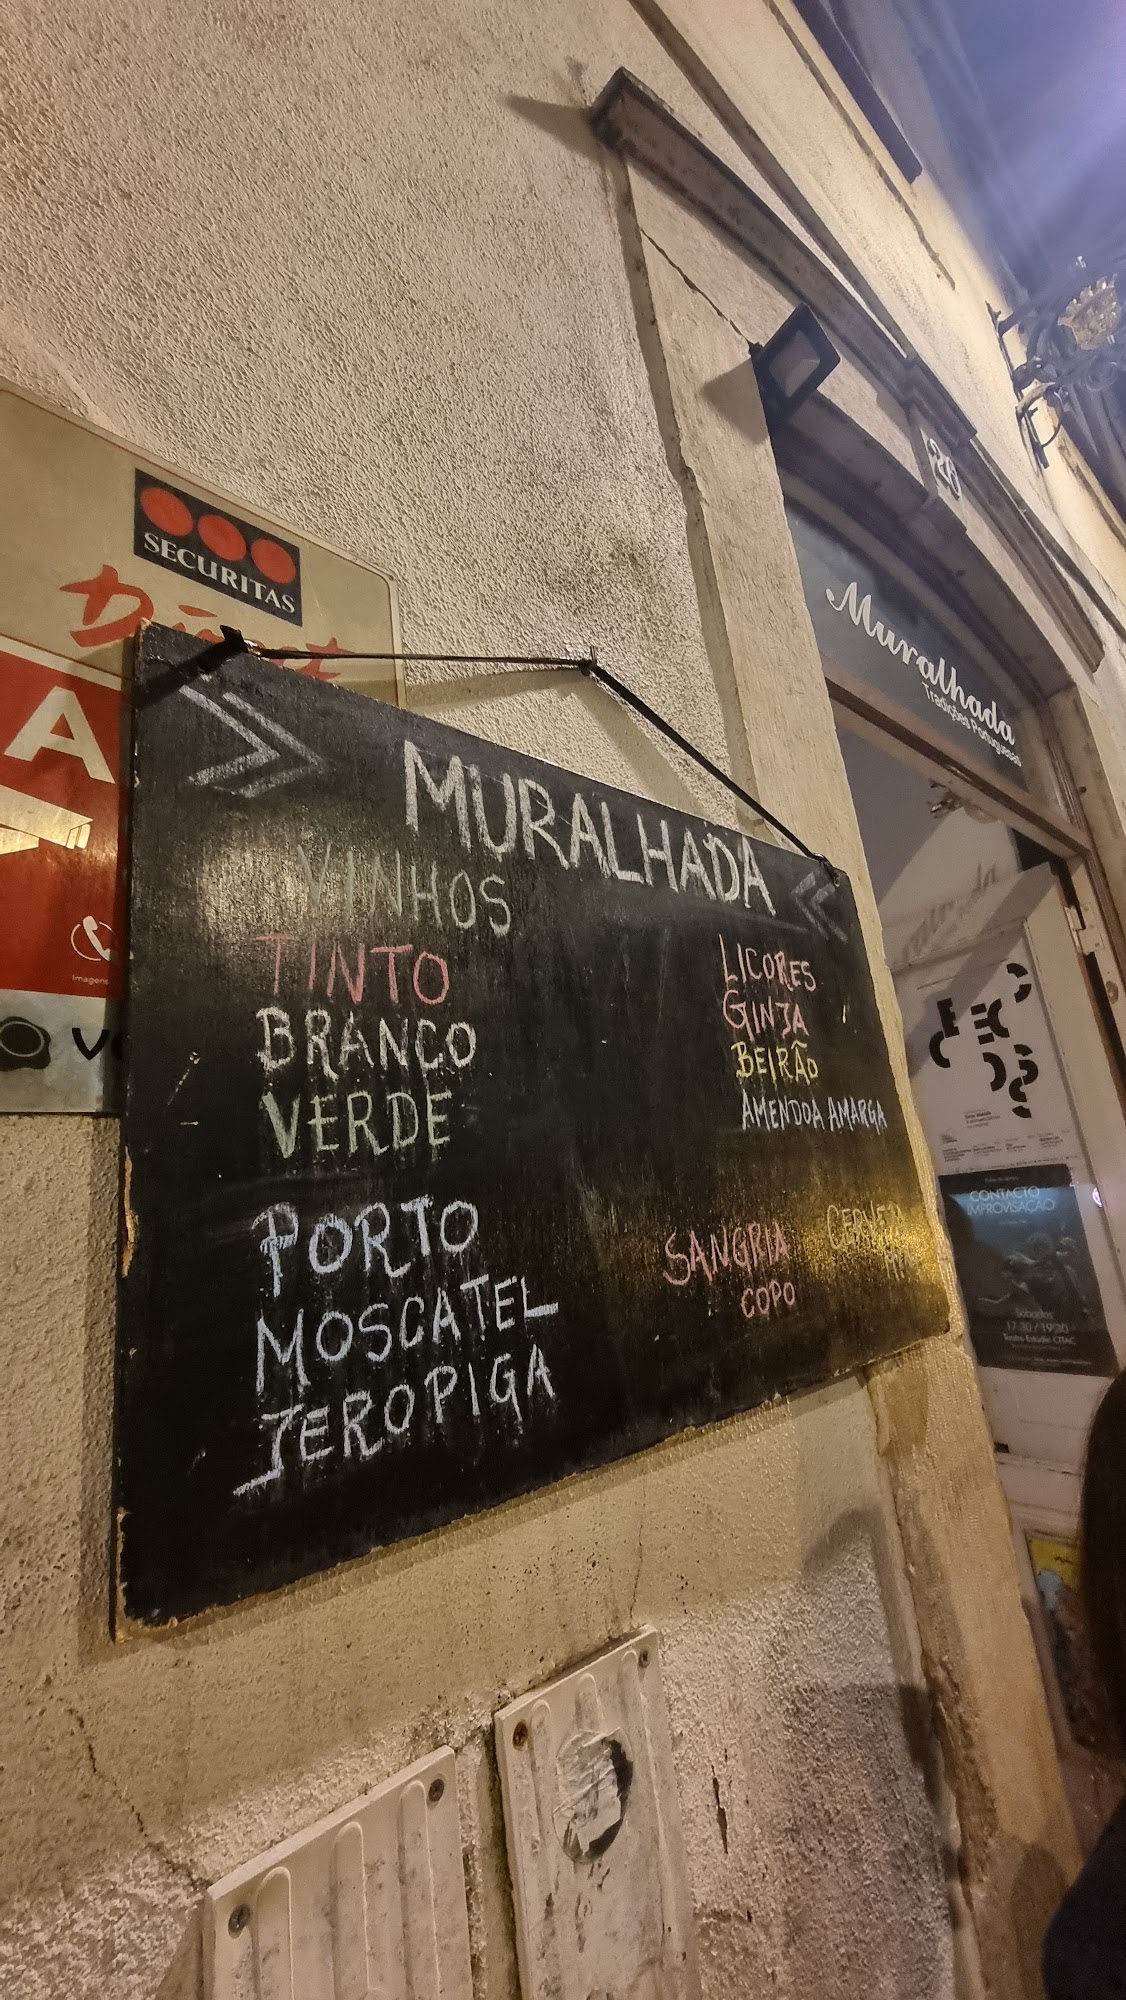 SECURITAS
Direct
A
Imagens
MURALHADA
VINHOS
TINTO
BRANCO
VERDE
PORTO
MOSCATEL
JEROPIGA
LICORES
GINJA
BEIRÃO
AMENDOA AMARGA
SANGRIA
COPO
CERVEJA
20
Muralhada
Tradições Portuguesas
CONTACTO
IMPROVISAÇÃO
Sábados
17:30 / 19:30
Teatro Estúdio CITAC